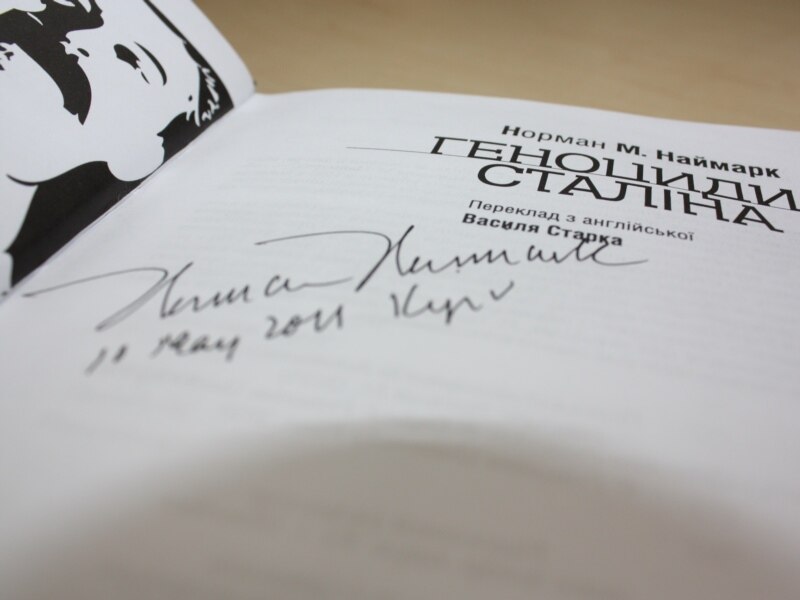 Норман М. Наймарк
ГЕНОЦИДИ
СТАЛІНА
Переклад з англійської
Василя Старка
Norman Naimark
10 May 2011 Kyiv